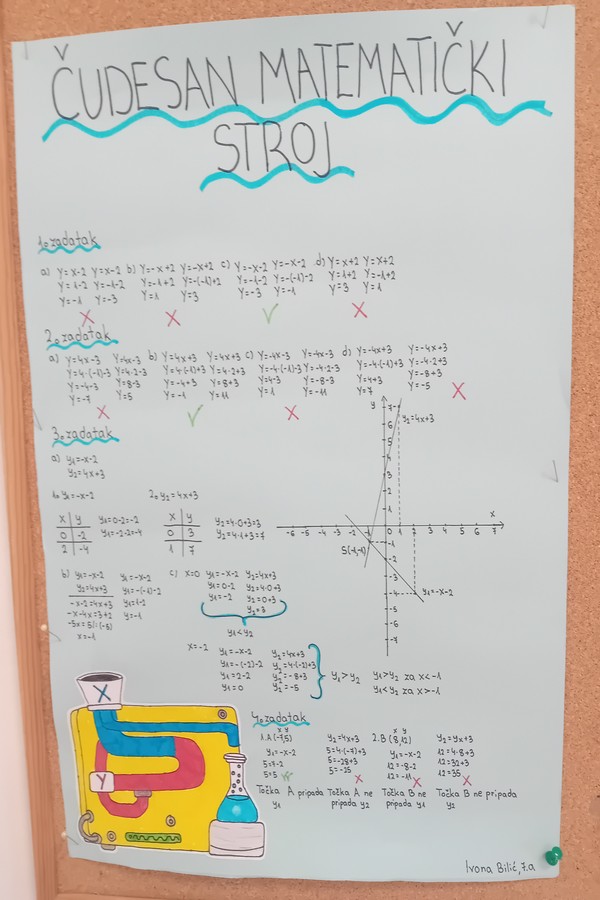 ČUDESAN MATEMATIČKI
STROJ
1. zadatak
a) y=x-2 y=x-2 b) y=-x+2 y=-x+2 c) y=-x-2 y=-x-2 d) y=x+2 y=x+2
y=1-2 y=-1-2 y=-1+2 y=-(-1)+2 y=-1-2 y=-(-1)-2 y=1+2 y=-1+2
y=-1 y=-3 y=1 y=3 y=-3 y=-1 y=3 y=1
2. zadatak
a) y=4x-3 y=4x-3 b) y=4x+3 y=4x+3 c) y=-4x-3 y=-4x-3 d) y=-4x+3 y=-4x+3
y=4·(-1)-3 y=4·2-3 y=4·(-1)+3 y=4·2+3 y=-4·(-1)-3 y=-4·2-3 y=-4·(-1)+3 y=-4·2+3
y=-4-3 y=8-3 y=-4+3 y=8+3 y=4-3 y=-8-3 y=4+3 y=-8+3
y=-7 y=5 y=-1 y=11 y=1 y=-11 y=7 y=-5
3. zadatak
a) y1=-x-2
y2=4x+3
1. y1=-x-2 2. y2=4x+3
x y y1=0-2=-2
0 -2 y1=-2-2=-4
2 -4
x y
0 3 y2=4·0+3=3
1 7 y2=4·1+3=7
y
7
6
5
4
3
2
1
y2=4x+3
x
-6 -5 -4 -3 -2 -1 0 1 2 3 4 5 6 7
-1
-2
-3
-4
-5
-6
-7
S(-1,-1)
y1=-x-2
b) y1=-x-2 y1=-x-2
y2=4x+3 y1=-(-1)-2
-x-2=4x+3 y1=1-2
-x-4x=3+2 y=-1
-5x=5/:(-5)
x=-1
c) x=0 y1=-x-2 y2=4x+3
y1=0-2 y2=4·0+3
y1=-2 y2=0+3
y2=3
y1<y2
x=-2 y1=-x-2 y2=4x+3
y1=-(-2)-2 y2=4·(-2)+3
y1=2-2 y2=-8+3
y1=0 y2=-5
y1>y2 y1>y2 za x<-1
y1<y2 za x>-1
4. zadatak
x y
1. A(-7,5) y2=4x+3
y1=-x-2 5=4·(-7)+3
5=7-2 5=-28+3
5=5 5=-25
x y
2. B (8,12) y2=4x+3
y1=-x-2 12=4·8+3
12=-8-2 12=32+3
12=-11 12=35
Točka A pripada y1
Točka A ne pripada y2
Točka B ne pripada y1
Točka B ne pripada y2
X
Y
Ivona Bilić, 7.a